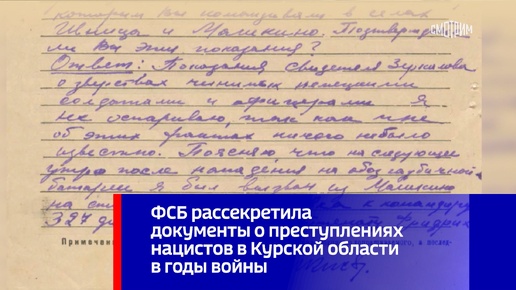 которым Вы командовали в селах
Ивница и Машкино. Подтвержд
ли Вы эти показания?
Ответ: Показания свидетеля Зеркалова
о зверствах чинимых немецкими
солдатами и офицерами я
не оспариваю, так как мне
об этих фактах ничего не было
известно. Поясняю, что на следующее
утро после нападения на обоз гаубичной
батареи я был вызван из Машкино
на к командиру
327
Примечание
СМОТРИМ
ФСБ рассекретила
документы о преступлениях
нацистов в Курской области
в годы войны